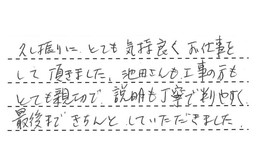 久し振りに、とても気持良くお仕事を
して頂きました。池田さんも工事の方も
とても親切で、説明も丁寧で判りやすく
最後まできちんとしていただきました。